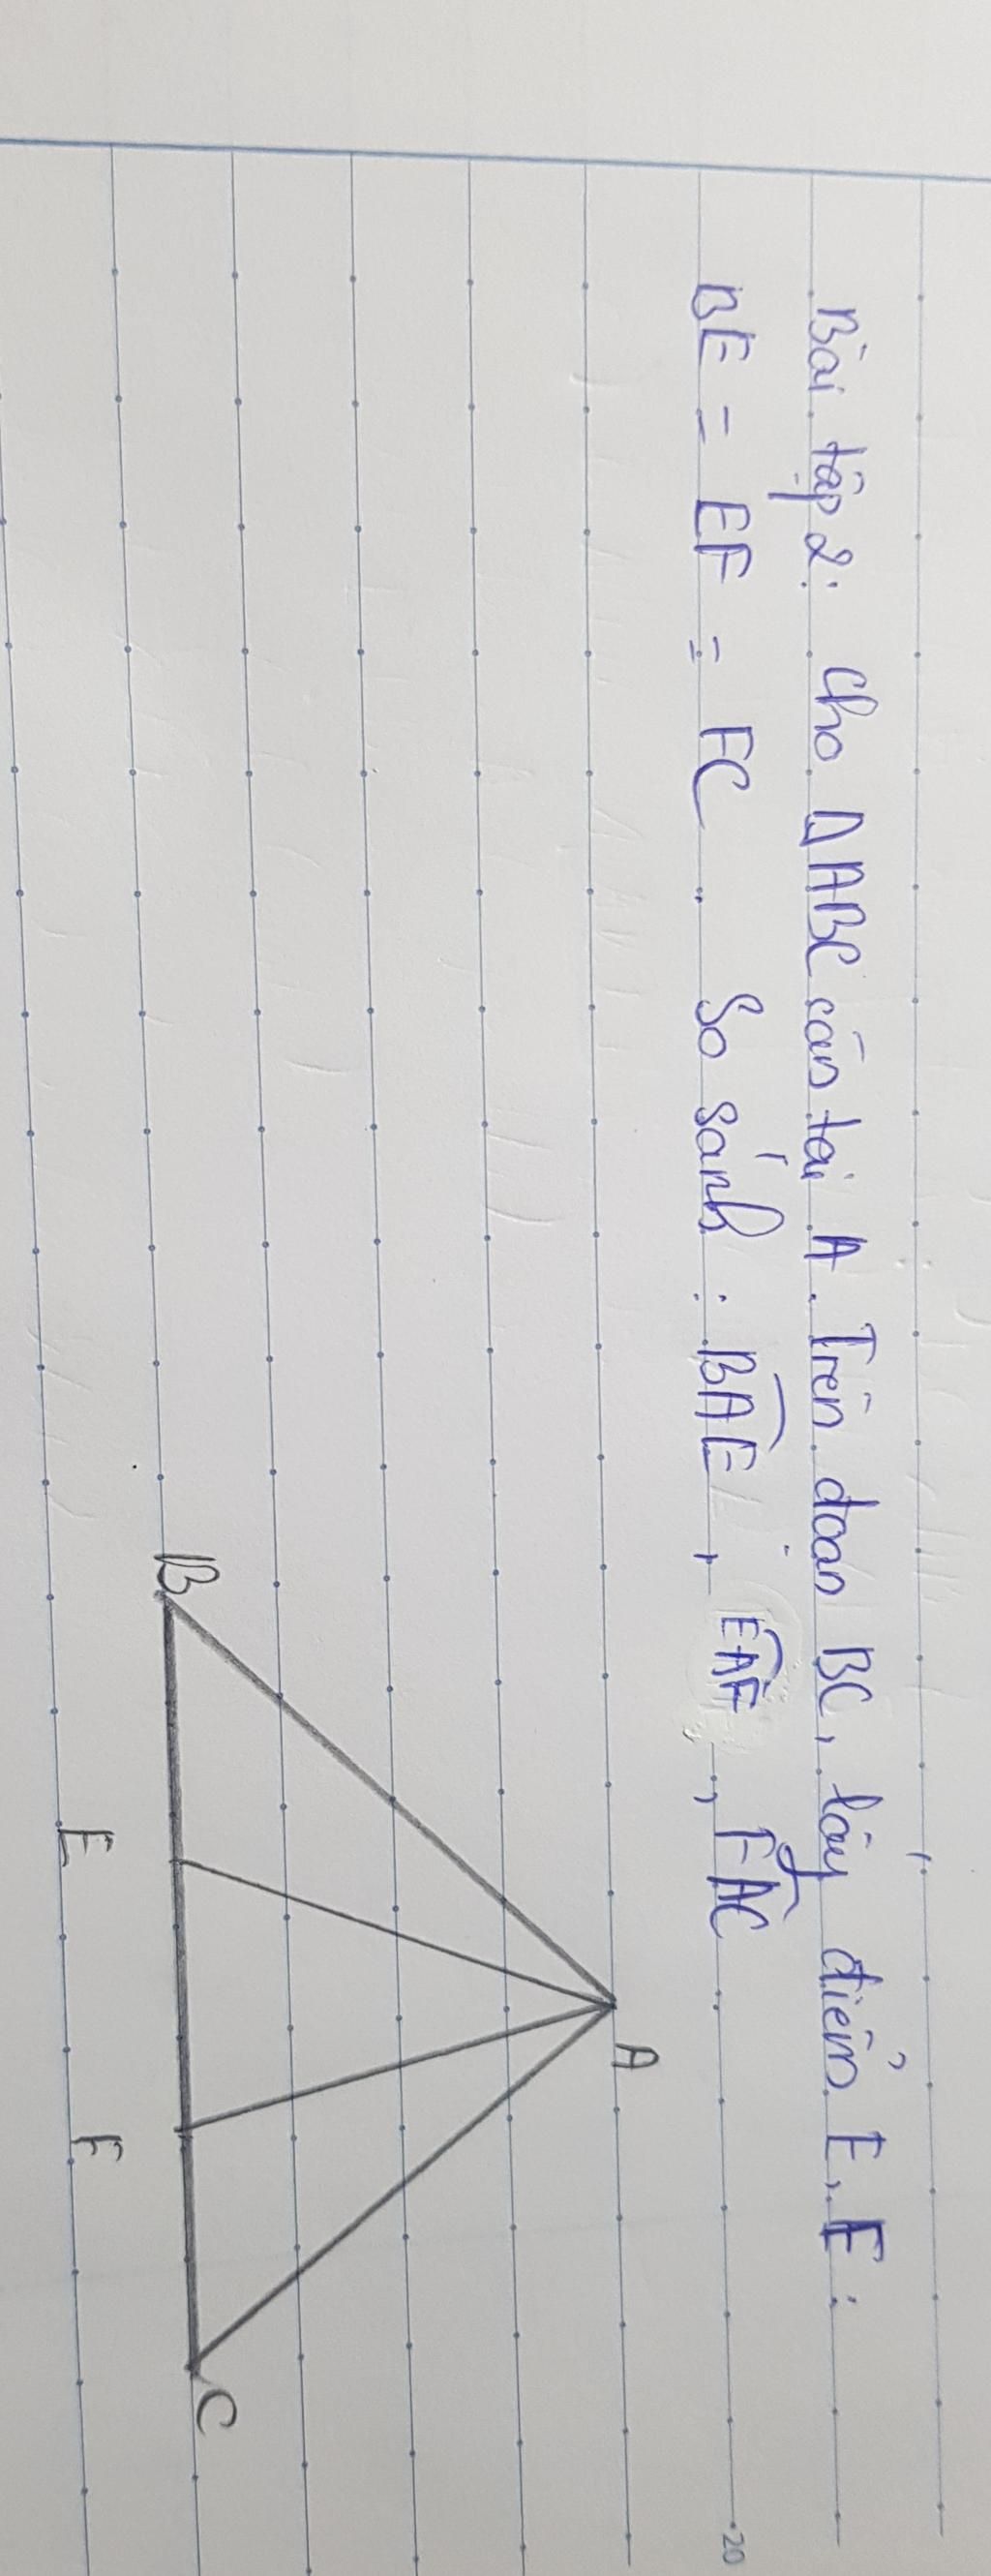 Bài tập 2: cho ΔABC cân tại A. Trên đoạn BC, lấy điểm E, F:
BE = EF = FC. So sánh: B͡AE, E͡AF, F͡AC
20
A
B
E
F
C